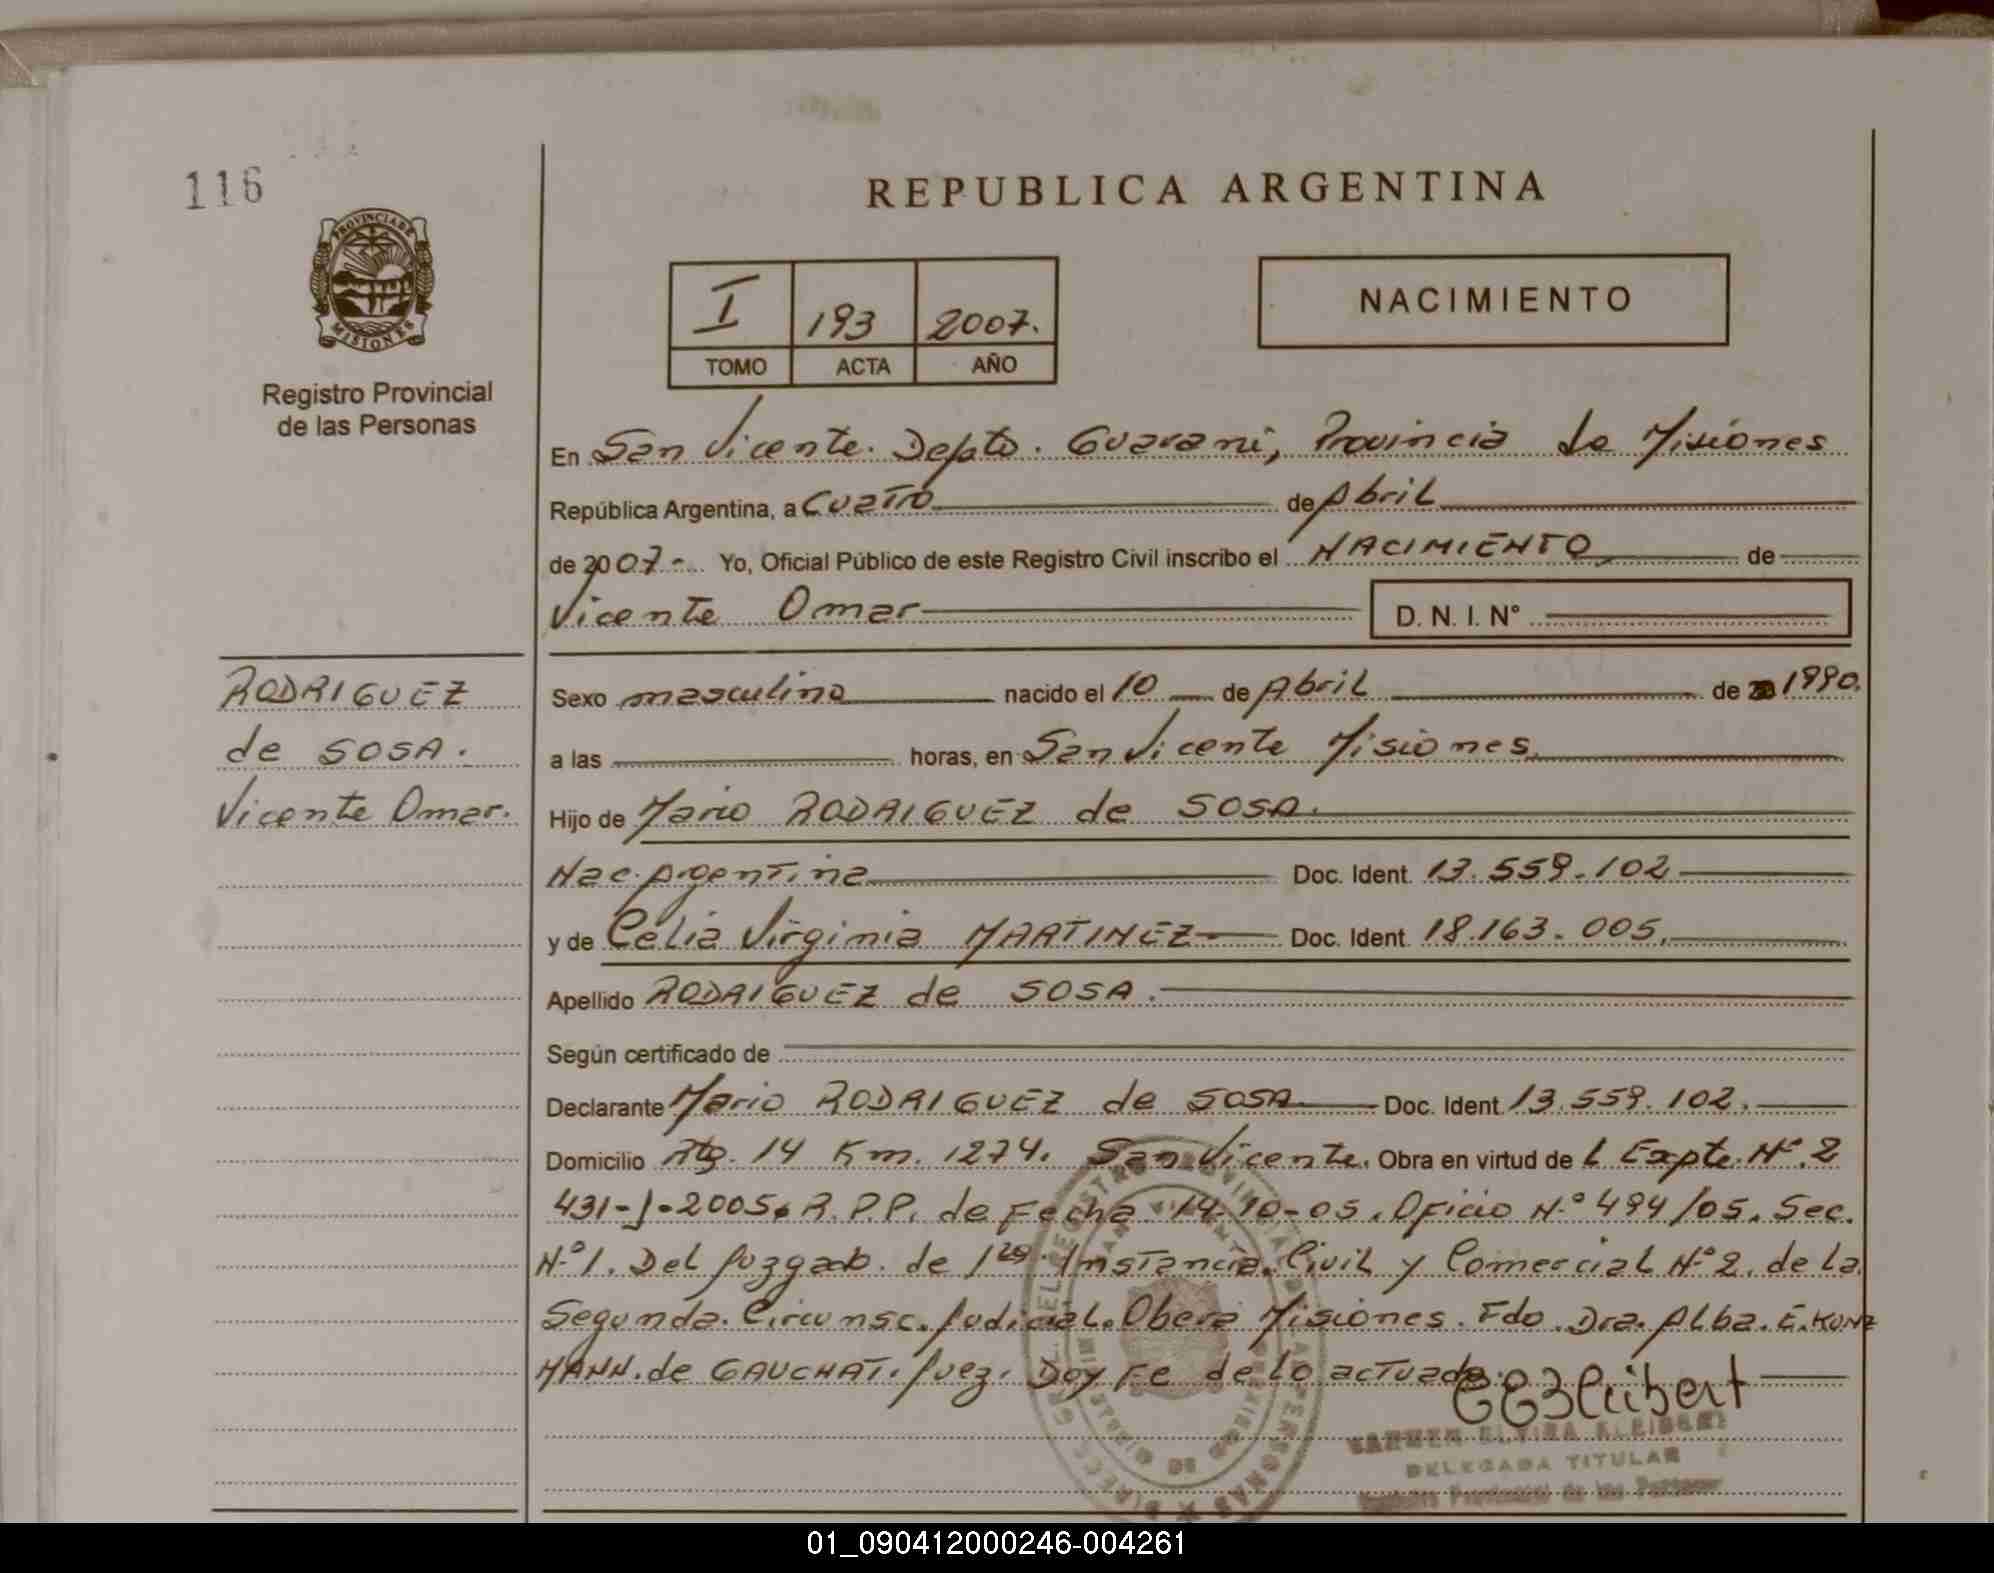 116
PROVINCIA DE
MISIONES
Registro Provincial
de las Personas
REPUBLICA ARGENTINA
I 193 2007.
TOMO ACTA AÑO
NACIMIENTO
En San Vicente. Depto. Guarani, Provincia de Misiones
República Argentina, a Cuatro de Abril
de 2007- Yo, Oficial Público de este Registro Civil inscribo el NACIMIENTO de
Vicente Omar D. N. I. N°
RODRIGUEZ
de SOSA.
Vicente Omar.
Sexo masculino nacido el 10 de Abril de 1990.
a las horas, en San Vicente Misiones.
Hijo de Mario RODRIGUEZ de SOSA.
Nac. Argentina Doc. Ident. 13.559.102
y de Celia Virginia MARTINEZ Doc. Ident. 18.163.005.
Apellido RODRIGUEZ de SOSA.
Según certificado de
Declarante Mario RODRIGUEZ de SOSA Doc. Ident. 13.559.102.
Domicilio 14 Km. 1274. San Vicente. Obra en virtud de l Expte. Nº. 2
431-J-2005. R.P.P. de Fecha 14-10-05. Oficio N.º 494/05. Sec.
N.º 1. Del Juzgado. de 1ra. Instancia. Civil y Comercial Nº 2. de La
Segunda. Circunsc. Judicial. Obera Misiones. Fdo. Dra. Alba. E. KUNZ
MANN. de GAUCHAT. Juez. Doy Fe de lo actuado.
CARMEN ELVIRA KLEIBERT
DELEGADA TITULAR
Registro Provincial de las Personas
01_090412000246-004261